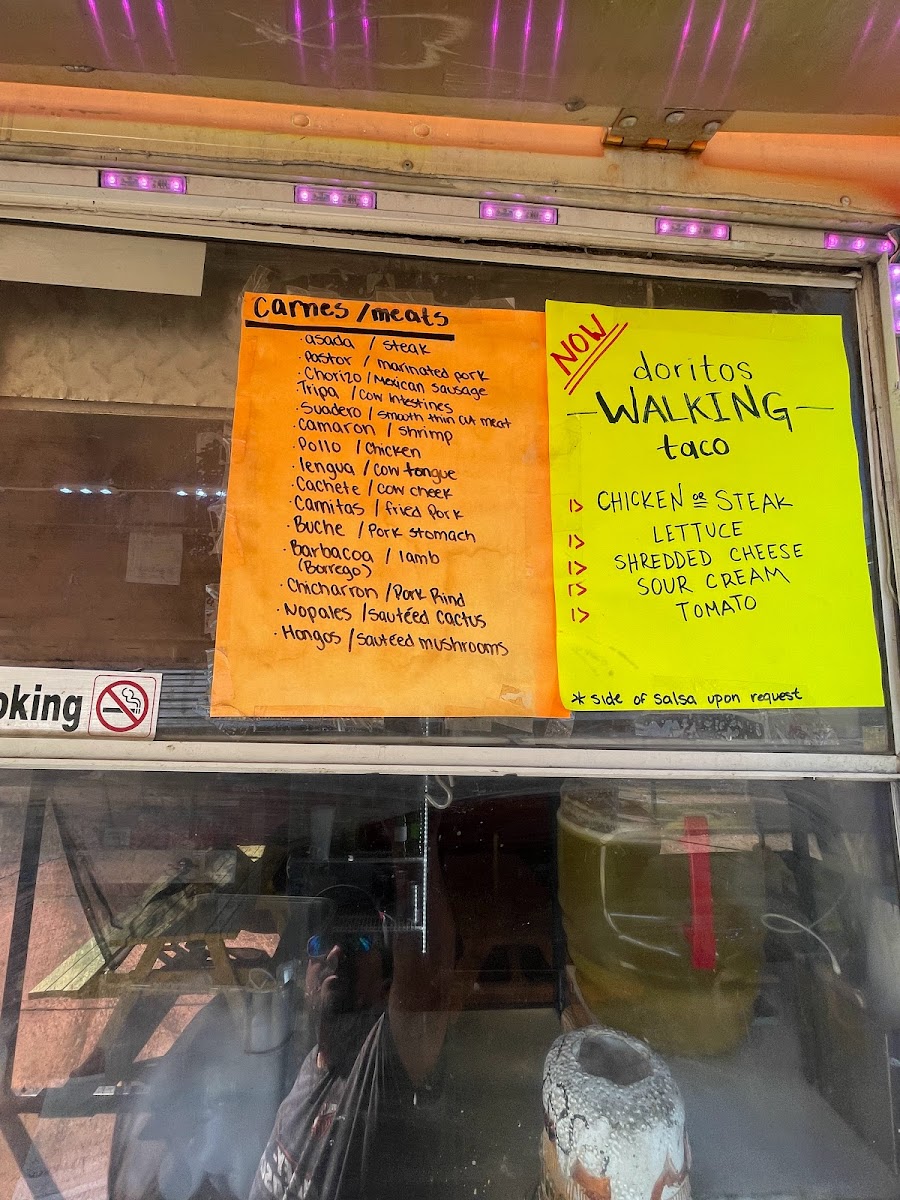 Carnes/meats
· asada / steak
· Pastor / marinated pork
· Chorizo / Mexican Sausage
· Tripa / Cow Intestines
· Suadero / smooth thin cut meat
· Camaron / shrimp
· Pollo / Chicken
· lengua / cow tongue
· Cachete / cow cheek
· Carnitas / fried Pork
· Buche / Pork stomach
· Barbacoa / lamb
(Borrego)
· Chicharron / Pork Rind
· Nopales / Sautéed Cactus
· Hongos / Sautéed mushrooms
NOW
doritos
-WALKING-
taco
CHICKEN OR STEAK
LETTUCE
SHREDDED CHEESE
SOUR CREAM
TOMATO
* side of salsa upon request
oking